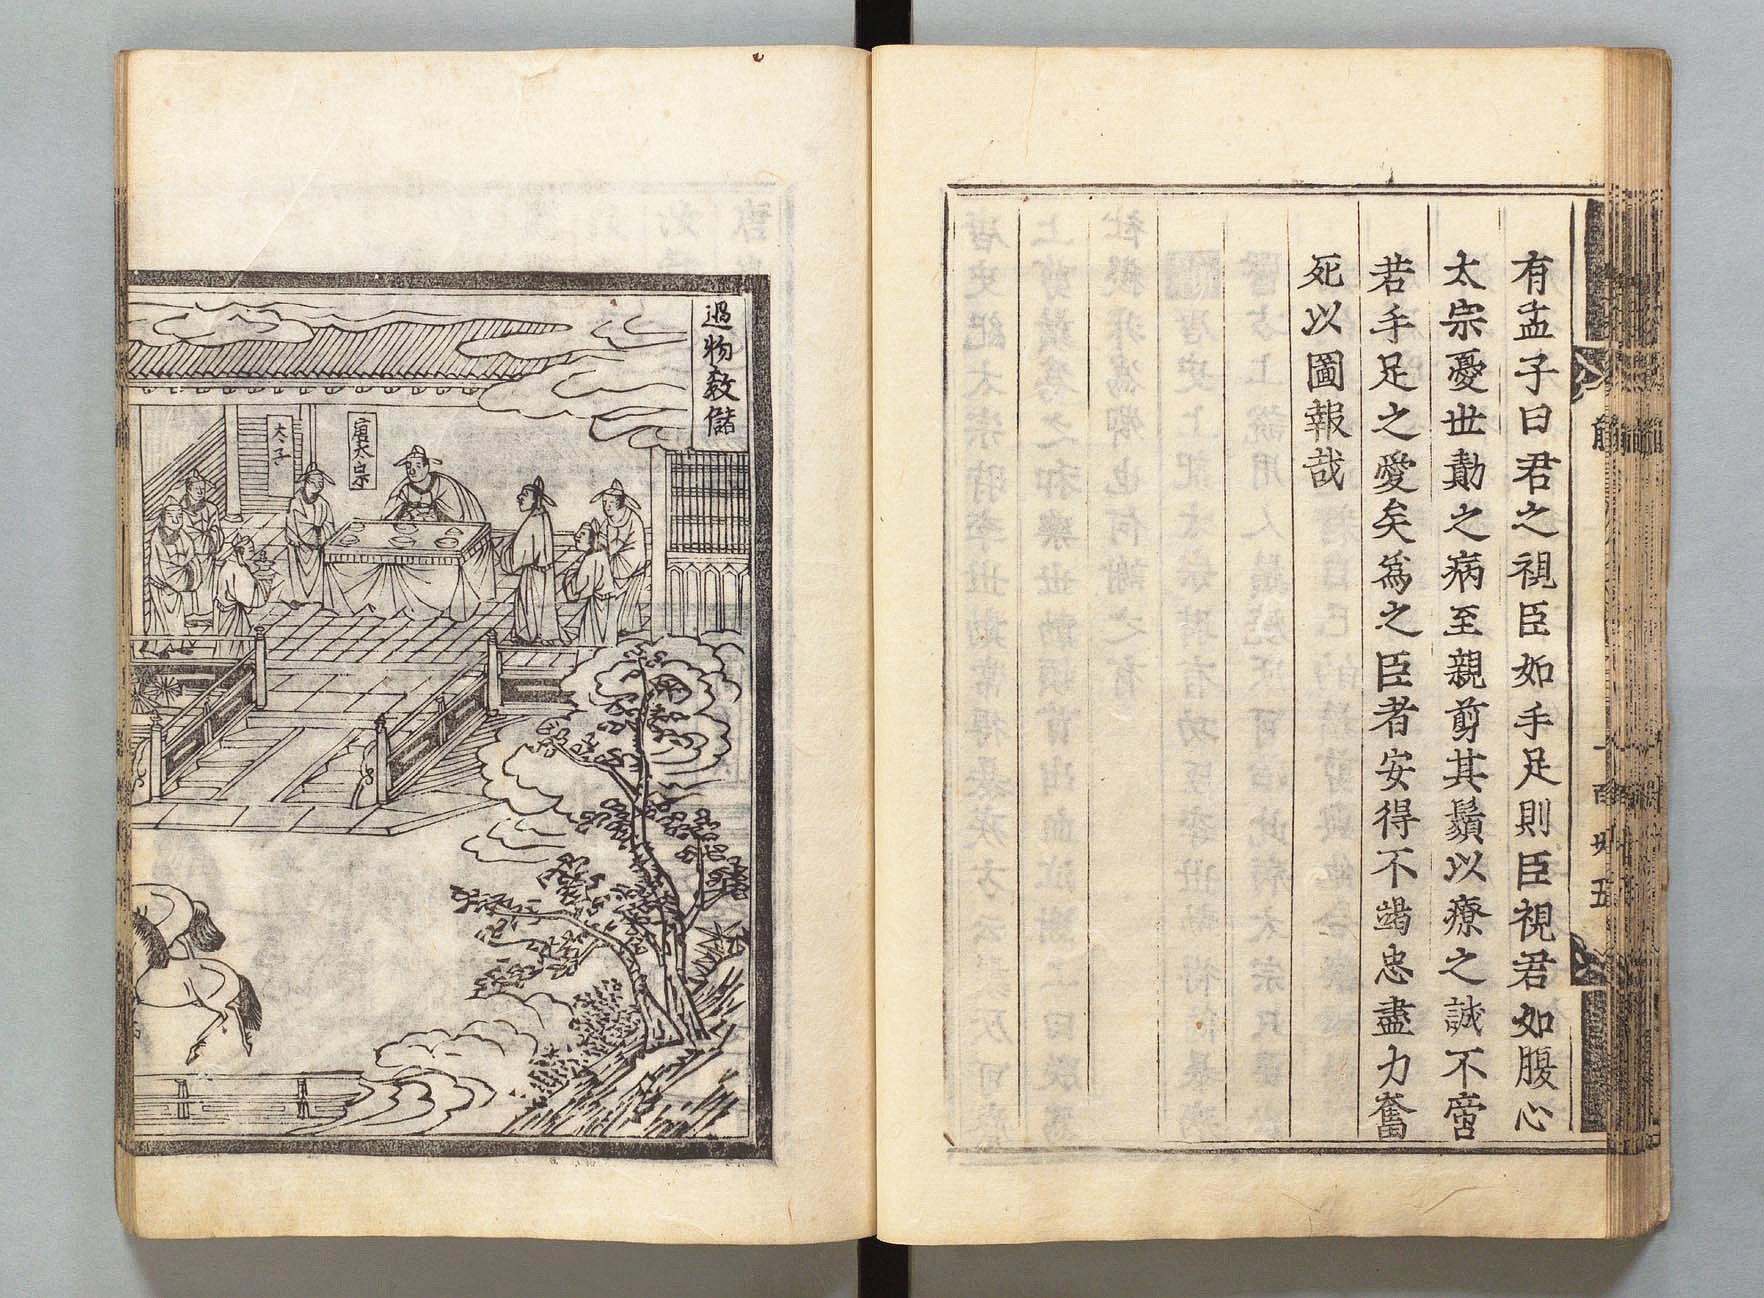 有孟子曰君之視臣如手足則臣視君如腹心
太宗憂世勣之病至親剪其鬚以療之誠不啻
若手足之愛矣爲之臣者安得不竭忠盡力奮
死以圖報哉
過物教儲
唐太宗
太子